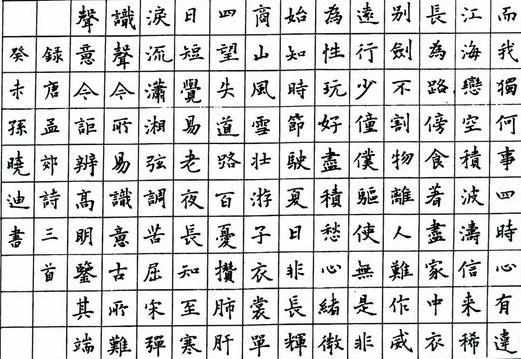 而我獨何事四時心有違
江海戀空積波濤信來稀
長為路傍食著盡家中衣
別劍不割物離人難作威
遠行少僮僕驅使無是非
為性玩好盡積愁心緒微
始知時節駛夏日非長輝
商山風雪壯游子衣裳單
四望失道路百憂攢肺肝
日短覺易老夜長知至寒
淚流瀟湘弦調苦屈宋彈
識聲今所易識意古所難
聲意今詎辨高明鑒其端
録唐孟郊詩三首
癸未孫曉迪書